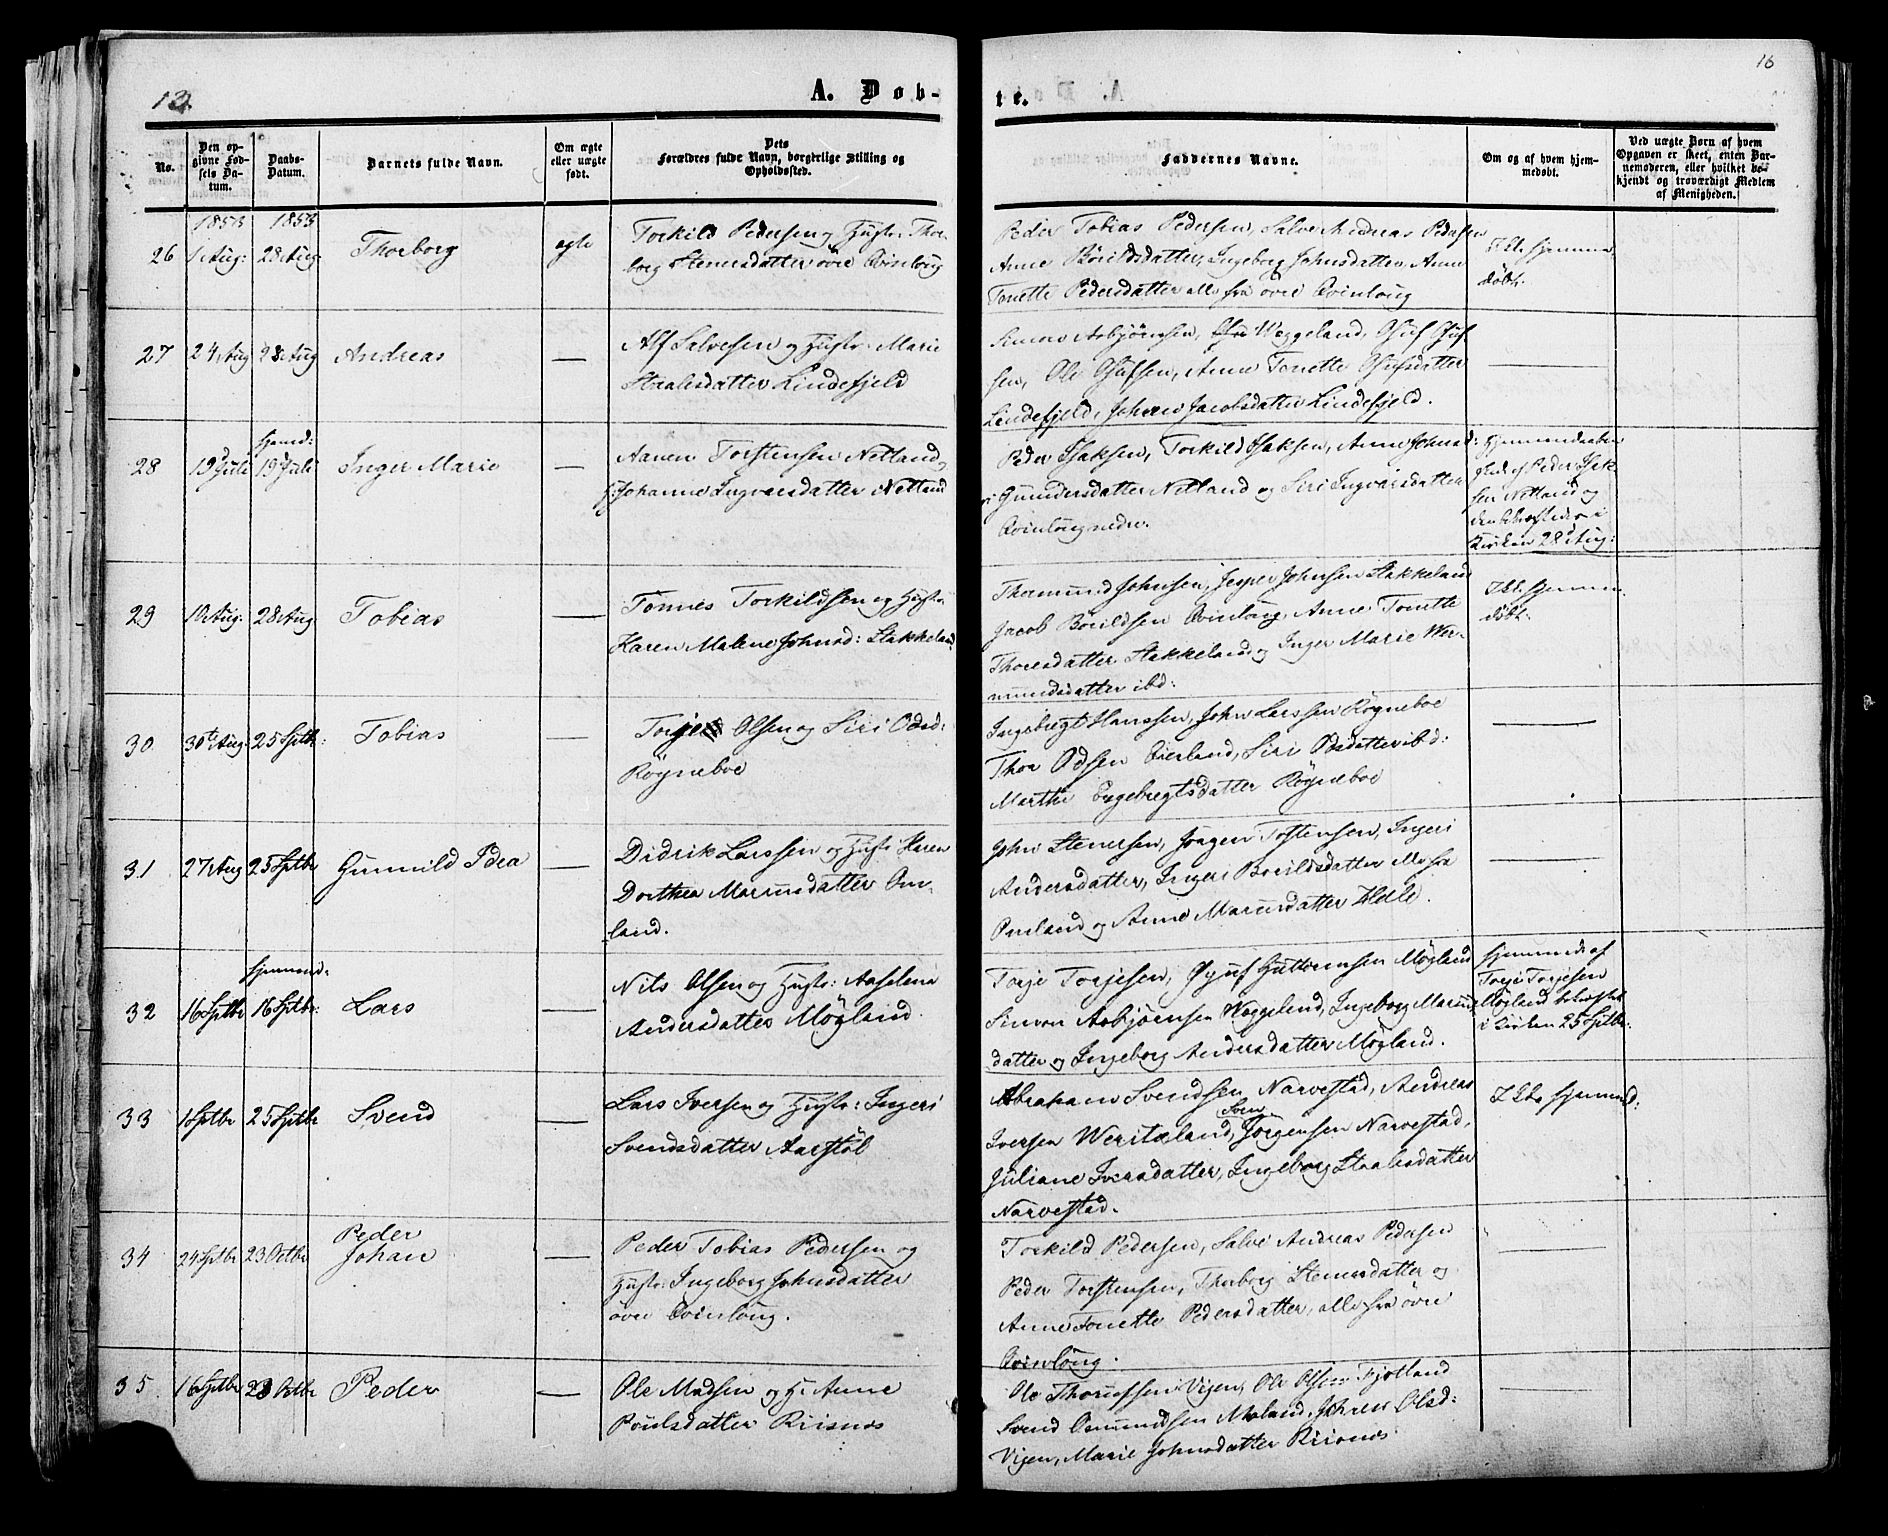 12.
A. Døb-
te.
16
No.
Den op-
givne Fød-
sels Da-
tum.
Daabs-
Datum.
Barnets fulde Navn.
Om ægte
eller uægte
født.
Dets
Forældres fulde Navn, borgerlige Stilling og
Opholdssted.
Faddernes Navne.
Om og af hvem hjem-
medøbt.
Ved uægte Børn af hvem
Opgaven er skeet, enten Bar-
nemoderen, eller hvilket be-
kjendt og troværdigt Medlem
af Menigheden.
1853 1853
26 1 Aug: 28 Aug Thorborg egte
Torkild Pedersen og Hustr: Thor-
borg Stenersdatter øvre Qvinloug
Peder Tobias Pedersen, Salve Andreas Pedersen
Anne Börildsdatter, Ingeborg Johnsdatter, Anne
Tonette Pedersdatter alle fra øvre Qvinloug
Ikke hjemme
døbt.
27 24 Aug 28 Aug Andreas —
Alf Salvesen og Hustr: Marie
Staalesdatter Lindefjeld
Simon Asbjörnsen, Weggeland, Osuf Osuf-
sen, Ole Osufsen, Anne Tonette Osufsdatter
Lindefjeld, Johanne Jacobsdatter Lindefjeld.
—
28 19 Juli hjemd: 19 Juli Inger Marie —
Aanen Torstensen Netland
H: Johanne Ingvarsdatter Netland
Peder Isaksen, Torkild Isaksen, Anne Johnsd:
Gundersdatter Netland og Siri Ingvarsdatter
Qvinloug nedre.
Hjemmedaaben
af Peder Isak-
sen Netland og
i
Kirken 28 Aug:
29 10 Aug: 28 Aug Tobias —
Tönnes Torkildsen og Hustr:
Karen Malene Johnsd: Stakkeland
Thormund Johnsen, Jesper Johnsen Stakkeland
Jacob Börildsen Qvinloug, Anne Tonette
Thoresdatter Stakkeland og Inger Marie Wer-
mundsdatter ibd:
Ikke hjemme
döbt.
30 30te Aug: 25 Sptbr: Tobias —
Torje Olsen og Siri Odsd:
Rögneboe
Ingebregt Hanssen, John Larssen Rögneboe
Thor Odsen Eierland, Siri Odsdatter ibd:
Marthe Engebregtsdatter Rögneboe
—
31 27 Aug 25 Sptbr Gunnild Pdea —
Didrik Larssen og Hustr: Karen
Dorthea Mariusdatter Om-
land.
John Stenersen, Jörgen Tostensen, Ingeri
Andersdatter, Ingeri Borildsdatter alle fra
Omland og Anne Mariusdatter Helle.
—
32 16 Sptbr hjemmed: 16 Sptbr: Lars —
Nils Olsen og Hustr: Aaselena
Andersdatter Mögland.
Torje Torjesen, Guttormsen Mögland
Simon Asbjörnsen Weggeland, Ingeborg Marius-
datter og Ingeborg Andersdatter Mögland.
hjemmed: af
Torje Torjesen
Mögland
i Kirken 25 Sptbr.
33 1 Sptbr 25 Sptbr Svend —
Lars Iversen og Hustr: Ingeri
Svendsdatter Aarstöl
Abraham Svendsen Narvestad, Andreas
Iversen Weritæland, Sven Jörgensen Narvestad,
Juliane Iversdatter, Ingeborg Staalesdatter
Narvestad.
Ikke hjemmed:
34 24 Sptbr 23 Octbr Peder
Johan —
Peder Tobias Pedersen og
Hustr: Ingeborg Johnsdatter
øvre Qvinloug.
Torkild Pedersen, Salve Andreas Pedersen
Peder Torstensen, Thorborg Stenersdatter og
Anne Tonette Pedersdatter, alle fra øvre
Qvinloug.
—
35. 16 Sptbr 23 Octbr Peder —
Ole Madsen og H: Anne
Poulsdatter Riisnes
Ole Thorufssen Vigen, Ole Olsen Fjotland
Svend Osmundsen Moland, Johren Olsd:
Vigen, Marie Johnsdatter Riisnes
—